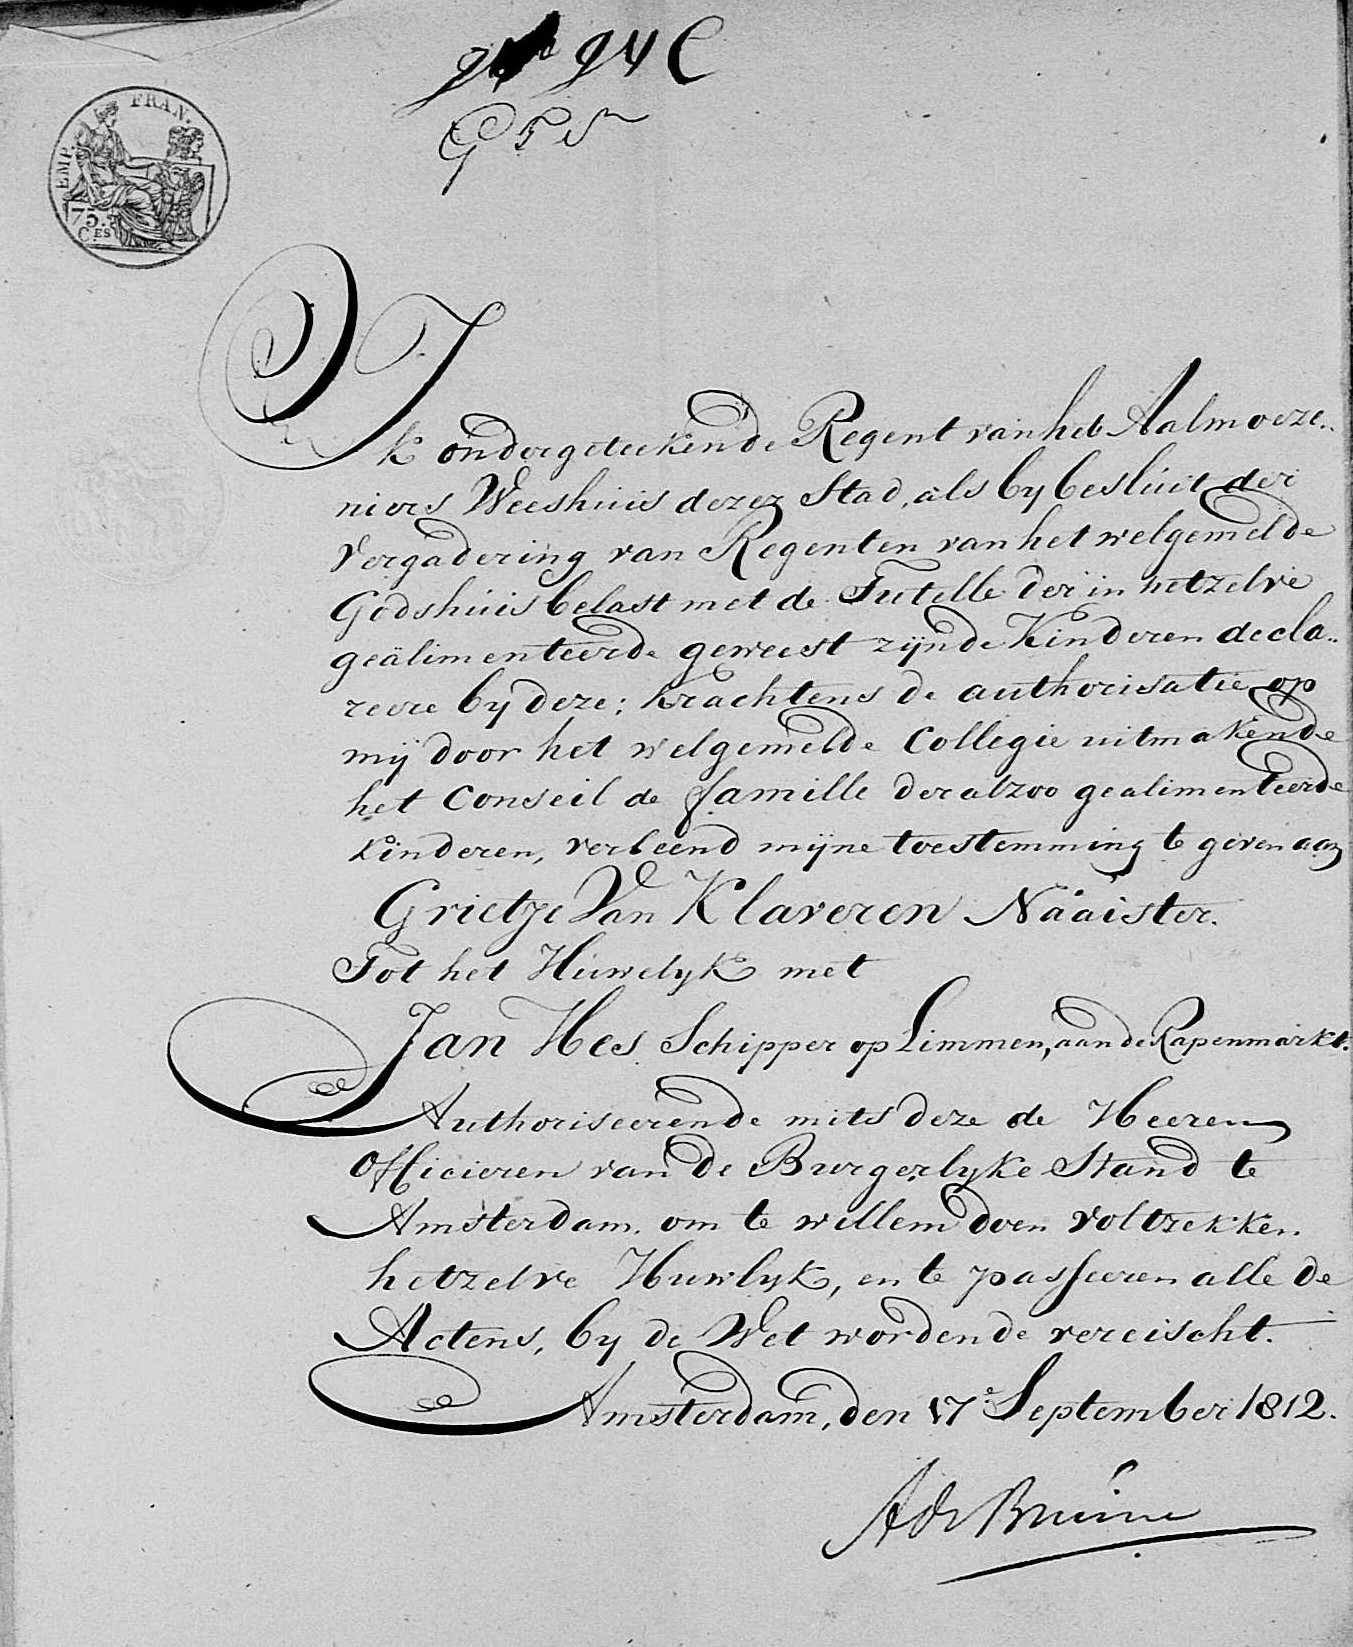 EMP. FRAN.
75.
C.ES
Ik ondergeteekende Regent van het Aalmoeze..
niers Weeshuis dezer Stad, als by besluit der
Vergadering van Regenten van het welgemelde
Godshuis belast met de Tutelle der in hetzelve
geälimenteerde geweest zijnde Kinderen decla..
reere by deze; krachtens de authorisatie op
mij door het welgemelde Collegie uitmakende
het Conseil de famille der alzoo gealimenteerde
kinderen, verleend mijne toestemming te geven aan
Grietje Van Klaveren Naaister.
Tot het Huwelyk met
Jan Hes Schipper op Limmen, aan de Rapenmarkt.
Authoriseerende mits deze de Heeren
Officieren van de Burgerlyke Stand te
Amsterdam, om te willem doen voltrekken
hetzelve Huwlyk, en te passeeren alle de
Actens, by de Wet wordende vereischt.
Amsterdam, den 17e September 1812.
A de Bruine